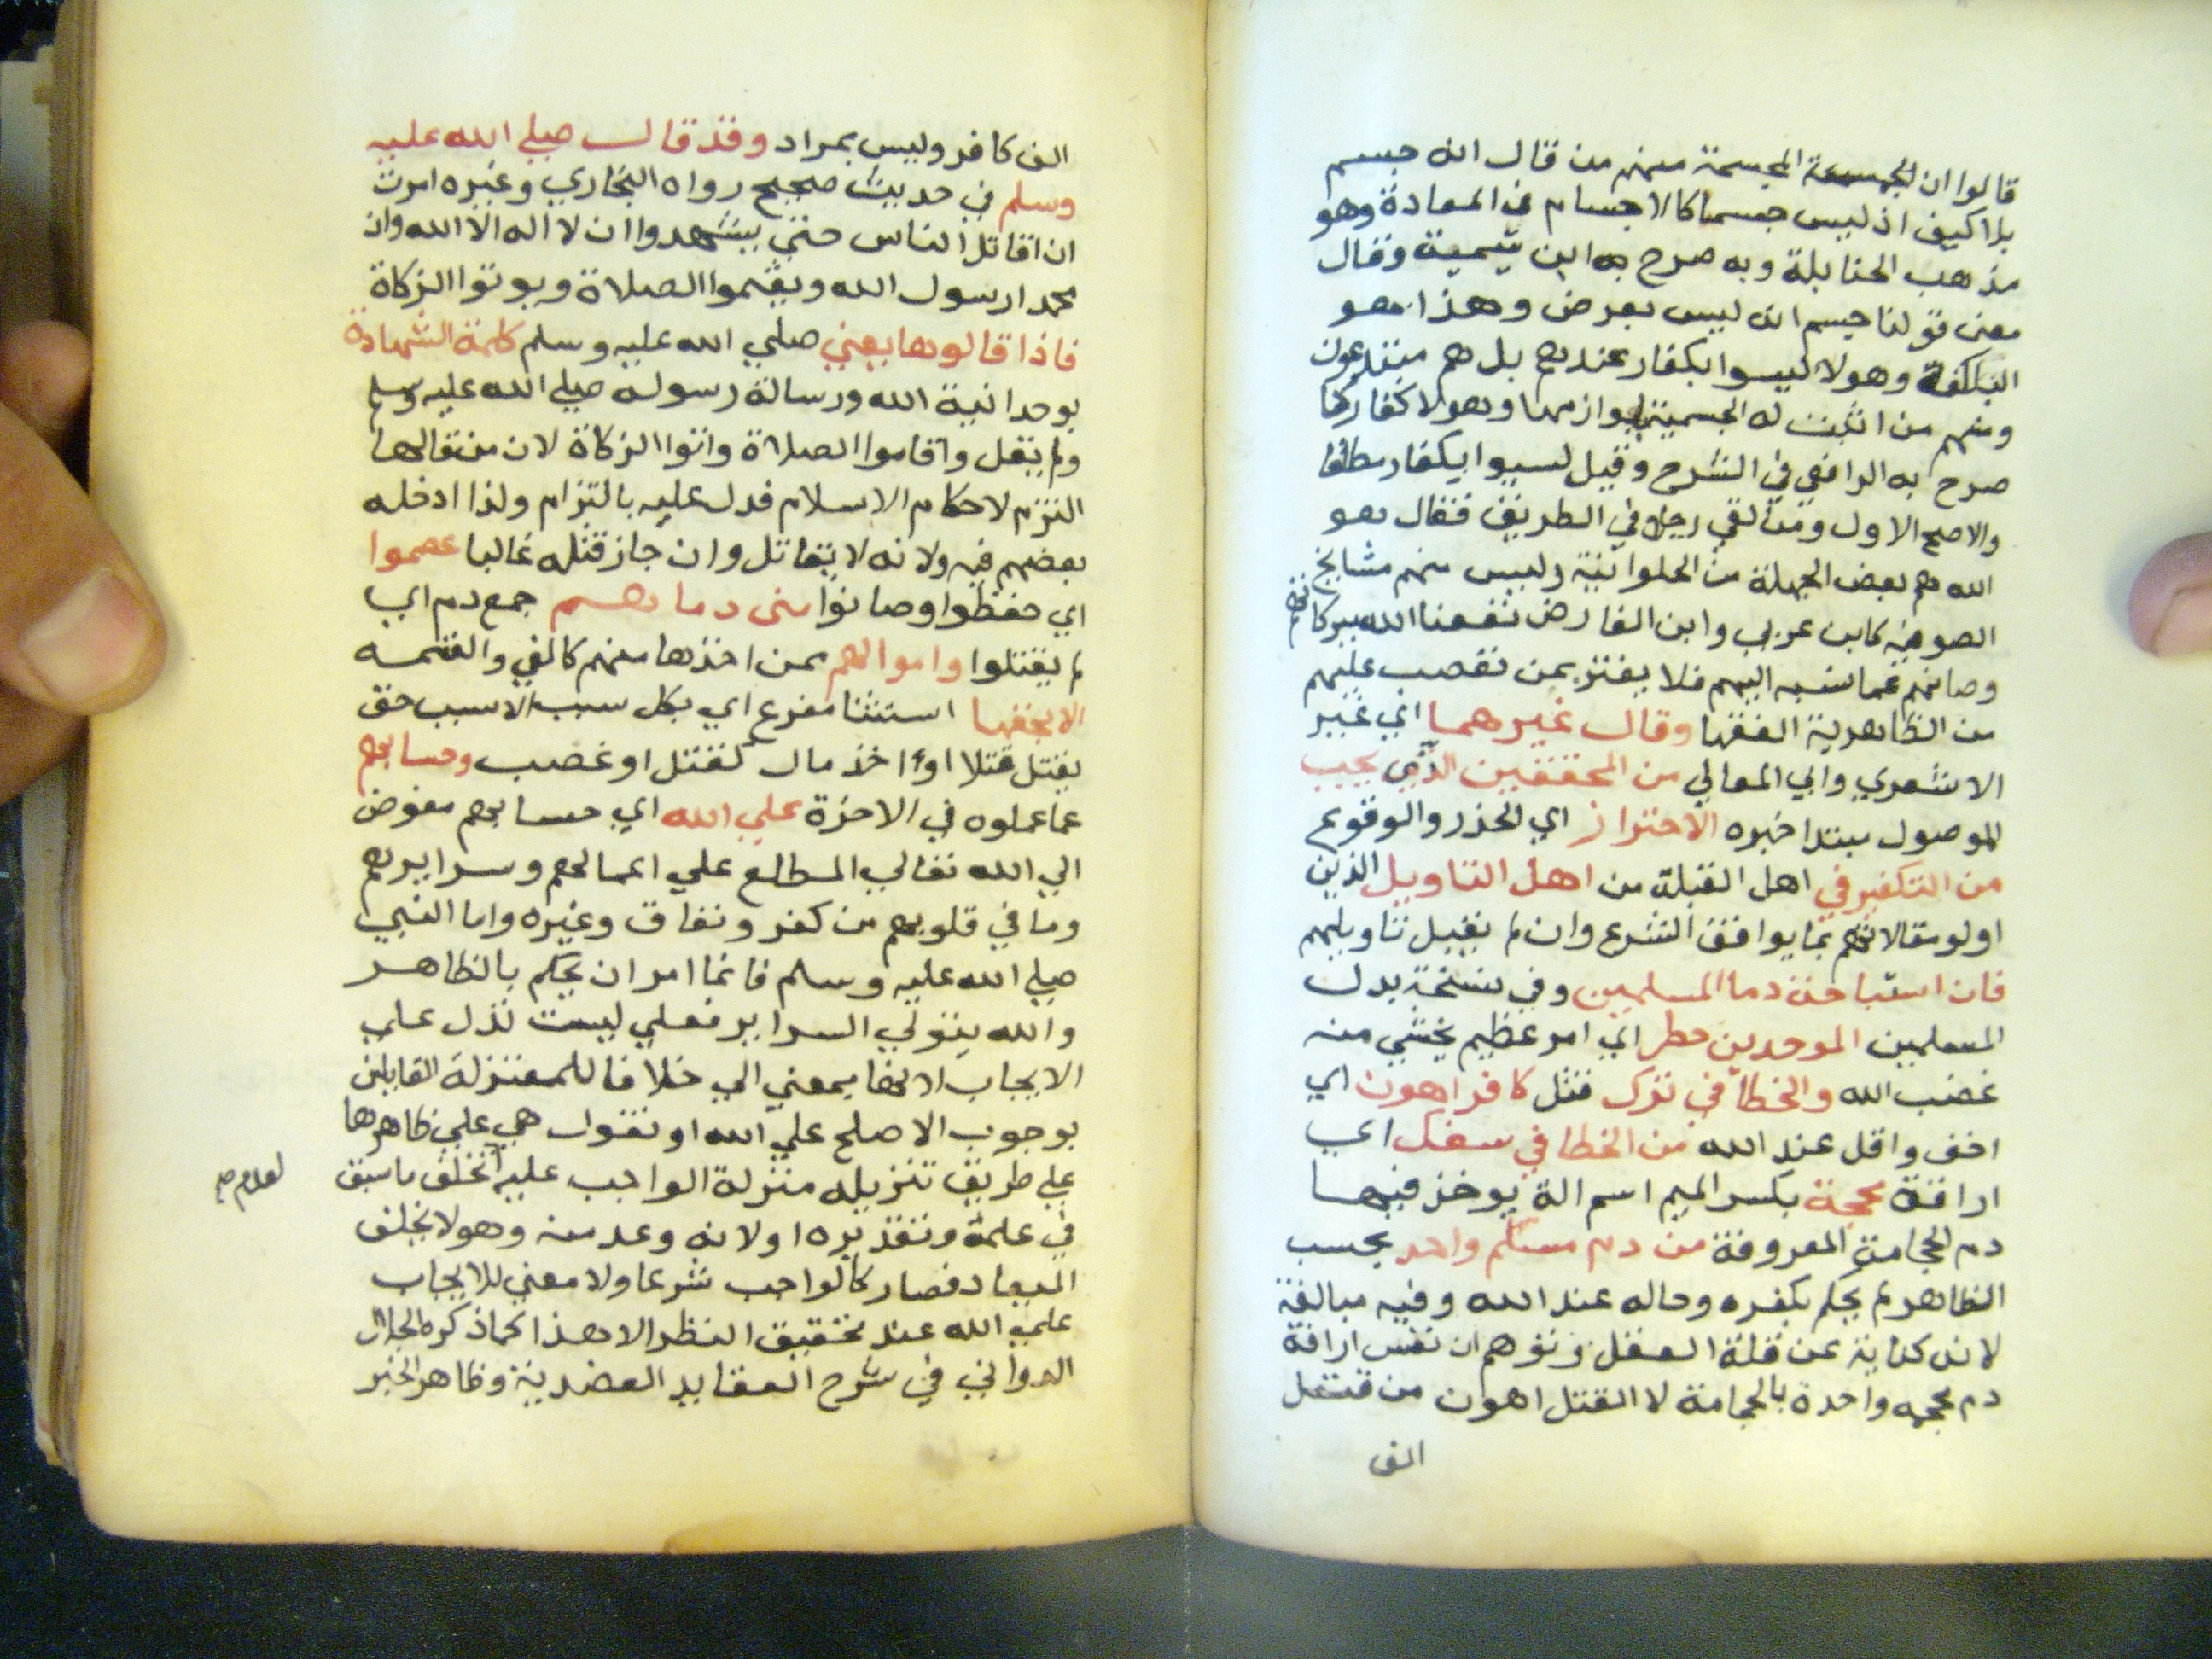 قالوا ان المجسمة منهم من قال انه جسم
بلا كيف اذ ليس جسما كالاجسام في المعادة وهو
مذهب الحنابلة وبه صرح به ابن تيمية وقال
معنى قولنا جسم انه ليس بعرض وهذا هو
البلكفة وهولا ليسوا بكفار عندهم بل هم مبتدعون
ومنهم من اثبت له الجسمية بلوازمها وهولا كفار كما
صرح به الرافعي في الشرح وقيل ليسوا بكفار مطلقا
والاصح الاول ومن لقي رجلا في الطريق فقال هو
الله هم بعض الجهلة من الحلوانية وليس منهم مشايخ
الصوفيه كابن عربي وابن الفارض نفعنا الله ببركاتهم
وصانهم عما نسبه اليهم فلا يغتر بمن تعصب عليهم
من الظاهرية الفقها وقال غيرهما اي غير
الاشعري وابي المعالي من المحققين الذي يجب
الموصول مبتدا خبره الاحتراز اي الحذر والوقوع
من التكفير في اهل القبلة من اهل التاويل الذين
اولو مقالاتهم بما يوافق الشرع وان لم نقبل تاويلهم
فان استباحة دما المسلمين وفي نسخة بدل
المسلمين الموحدين خطر اي امر عظيم يخشي منه
غضب الله والخطا في ترك قتل كافر اهون اي
اخف واقل عند الله من الخطا في سفك اي
اراقة محجمة بكسر الميم اسم الة يوخذ فيها
دم الحجامة المعروفة من دم مسلم واحد بحسب
الظاهر لم يحكم بكفره وحاله عند الله وفيه مبالغة
لانه كناية عن قلة الفعل وتوهم ان نفس اراقة
دم محجمه واحدة بالحجامة لا القتل اهون من قتل
الف
الف كافر وليس بمراد وقد قال صلي الله عليه
وسلم في حديث صحيح رواه البخاري وغيره امرت
ان اقاتل الناس حتي يشهدوا ان لا اله الا الله وان
محمدا رسول الله ويقيموا الصلاة ويوتوا الزكاة
فاذا قالوها يعني صلي الله عليه وسلم كلمة الشهادة
بوحدانية الله ورسالة رسوله صلي الله عليه وسلم
ولم يقل واقاموا الصلاة واتوا الزكاة لان من قالها
التزم لاحكام الاسلام فدل عليه بالتزام ولذا ادخله
بعضهم فيه ولانه لا يقاتل وان جاز قتله غالبا عصموا
اي حفظوا وصانوا مني دماهم جمع دم اي
لم يقتلوا واموالهم ممن اخذها منهم كالفي والقسمه
الا بحقها استثنا مفرغ اي بكل سبب الا سبب حق
يقتل قتلا او اخذ مال كقتل او غصب وحسابهم
عما عملوه في الاخرة علي الله اي حسابهم مفوض
الي الله تعالي المطلع علي اعمالهم وسرايرهم
وما في قلوبهم من كفر ونفاق وغيره واما النبي
صلي الله عليه وسلم فانما امر ان يحكم بالظاهر
والله يتولي السراير فعلي ليست تدل علي
الايجاب اذ انها بمعني الي خلافا للمعتزلة القايلين
بوجوب الاصلح علي الله او نقول هي علي ظاهرها
علي طريق تنزيله منزلة الواجب عليه تخلف ما سبق
لعدم صح
في علمه وتقديره او لانه وعد منه وهو لا يخلف
الميعاد فصار كالواجب شرعا ولا معني للايجاب
علي الله عند تحقيق النظر الا هذا كما ذكره الجلال
الدواني في شرح العقايد العضدية وظاهر الخبر